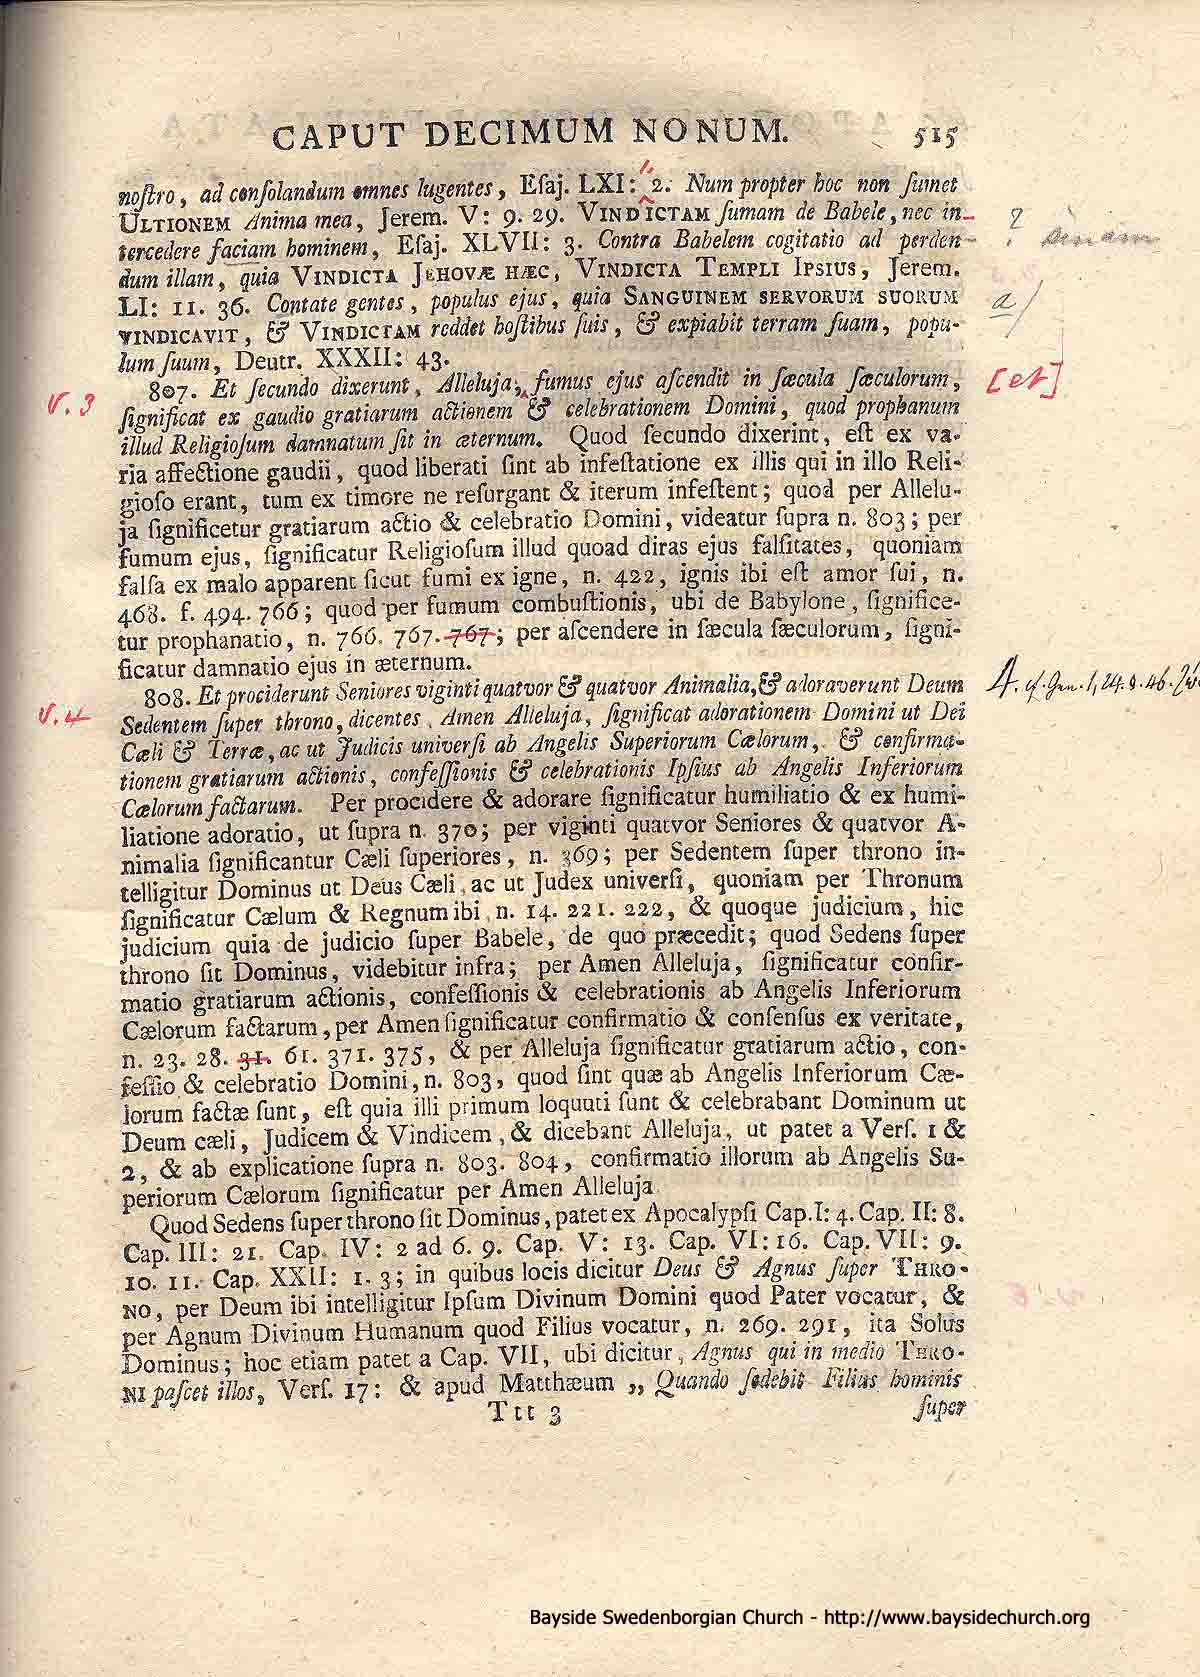 CAPUT DECIMUM NONUM. 515
noſtro, ad conſolandum omnes lugentes, Eſaj. LXI: 2. Num propter hoc non ſumet
ULTIONEM Anima mea, Jerem. V: 9. 29. VINDICTAM ſumam de Babele, nec in-
tercedere faciam hominem, Eſaj. XLVII: 3. Contra Babelem cogitatio ad perden-
?
dum illam, quia VINDICTA JEHOVÆ HÆC, VINDICTA TEMPLI IPSIUS, Jerem.
LI: 11. 36. Contate gentes, populus ejus, quia SANGUINEM SERVORUM SUORUM
a)
VINDICAVIT, & VINDICTAM reddet hoſtibus ſuis, & expiabit terram ſuam, popu-
lum ſuum, Deutr. XXXII: 43.
v. 3
807. Et ſecundo dixerunt, Alleluja, fumus ejus aſcendit in ſæcula ſæculorum,
[et]
ſignificat ex gaudio gratiarum actionem & celebrationem Domini, quod prophanum
illud Religioſum damnatum ſit in æternum. Quod ſecundo dixerint, eſt ex va-
ria affectione gaudii, quod liberati ſint ab infeſtatione ex illis qui in illo Reli-
gioſo erant, tum ex timore ne reſurgant & iterum infeſtent; quod per Allelu-
ja ſignificetur gratiarum actio & celebratio Domini, videatur ſupra n. 803; per
fumum ejus, ſignificatur Religioſum illud quoad diras ejus falſitates, quoniam
falſa ex malo apparent ſicut fumi ex igne, n. 422, ignis ibi eſt amor ſui, n.
468. f. 494. 766; quod per fumum combuſtionis, ubi de Babylone, ſignifice-
tur prophanatio, n. 766. 767. 767; per aſcendere in ſæcula ſæculorum, ſigni-
ficatur damnatio ejus in æternum.
v. 4
808. Et prociderunt Seniores viginti quatvor & quatvor Animalia, & adoraverunt Deum
4. cf. Gen. 1, 24. 9. 46.
Sedentem ſuper throno, dicentes, Amen Alleluja, ſignificat adorationem Domini ut Dei
Cæli & Terræ, ac ut Judicis univerſi ab Angelis Superiorum Cælorum, & confirma-
tionem gratiarum actionis, confeſſionis & celebrationis Ipſius ab Angelis Inferiorum
Cælorum factarum. Per procidere & adorare ſignificatur humiliatio & ex humi-
liatione adoratio, ut ſupra n. 370; per viginti quatvor Seniores & quatvor A-
nimalia ſignificantur Cæli ſuperiores, n. 369; per Sedentem ſuper throno in-
telligitur Dominus ut Deus Cæli, ac ut Judex univerſi, quoniam per Thronum
ſignificatur Cælum & Regnum ibi, n. 14. 221. 222, & quoque judicium, hic
judicium quia de judicio ſuper Babele, de quo præcedit; quod Sedens ſuper
throno ſit Dominus, videbitur infra; per Amen Alleluja, ſignificatur confir-
matio gratiarum actionis, confeſſionis & celebrationis ab Angelis Inferiorum
Cælorum factarum, per Amen ſignificatur confirmatio & conſenſus ex veritate,
n. 23. 28. 31. 61. 371. 375, & per Alleluja ſignificatur gratiarum actio, con-
feſſio & celebratio Domini, n. 803, quod ſint quæ ab Angelis Inferiorum Cæ-
lorum factæ ſunt, eſt quia illi primum loquuti ſunt & celebrabant Dominum ut
Deum cæli, Judicem & Vindicem, & dicebant Alleluja, ut patet a Verſ. 1 &
2, & ab explicatione ſupra n. 803. 804, confirmatio illorum ab Angelis Su-
periorum Cælorum ſignificatur per Amen Alleluja
Quod Sedens ſuper throno ſit Dominus, patet ex Apocalypſi Cap. I: 4. Cap. II: 8.
Cap. III: 21. Cap. IV: 2 ad 6. 9. Cap. V: 13. Cap. VI: 16. Cap. VII: 9.
10. 11. Cap. XXII: 1. 3; in quibus locis dicitur Deus & Agnus ſuper THRO-
NO, per Deum ibi intelligitur Ipſum Divinum Domini quod Pater vocatur, &
per Agnum Divinum Humanum quod Filius vocatur, n. 269. 291, ita Solus
Dominus; hoc etiam patet a Cap. VII, ubi dicitur, Agnus qui in medio THRO-
NI paſcet illos, Verſ. 17: & apud Matthæum „ Quando ſedebit Filius hominis
Ttt 3 ſuper
Bayside Swedenborgian Church - http://www.baysidechurch.org